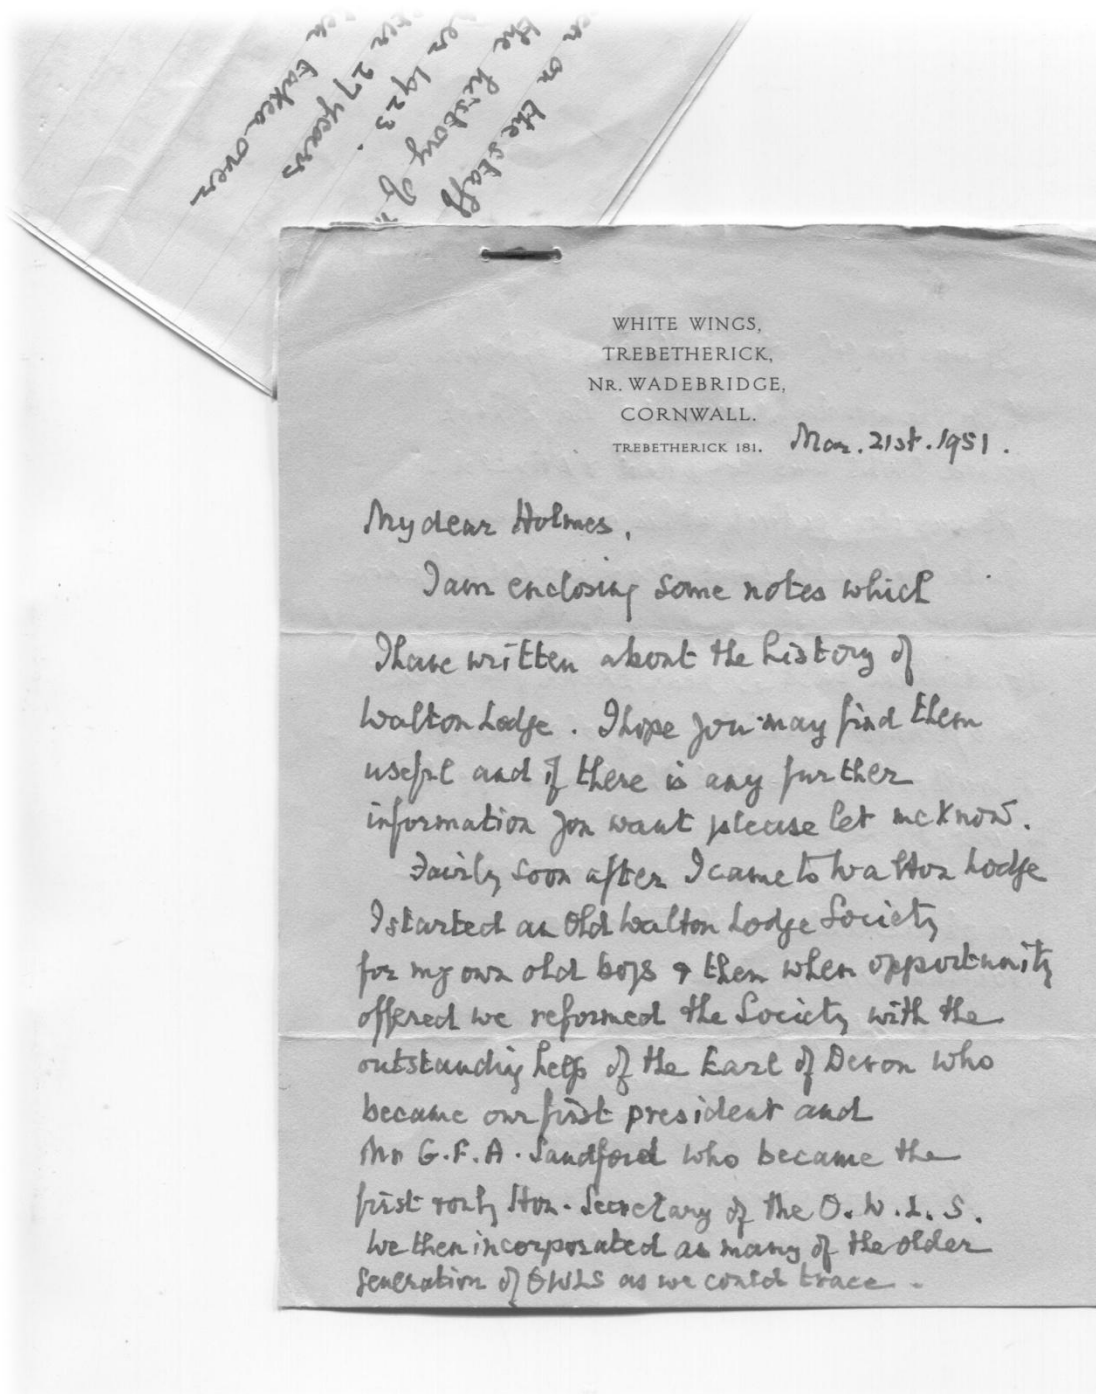 en on the staff
the history of
er 1923.
ter 27 years
en taken over
WHITE WINGS,
TREBETHERICK,
NR. WADEBRIDGE,
CORNWALL.
TREBETHERICK 181.
Mar. 21st. 1951.
My dear Holmes,
I am enclosing some notes which
I have written about the history of
Walton Lodge. I hope you may find them
useful and if there is any further
information you want please let me know.
Fairly soon after I came to Walton Lodge
I started an Old Walton Lodge Society
for my own old boys & then when opportunity
offered we reformed the Society with the
outstanding help of the Earl of Devon who
became our first president and
Mr G.F.A. Sandford who became the
first & only Hon. Secretary of the O.W.L.S.
We then incorporated as many of the older
generation of OWLS as we could trace.